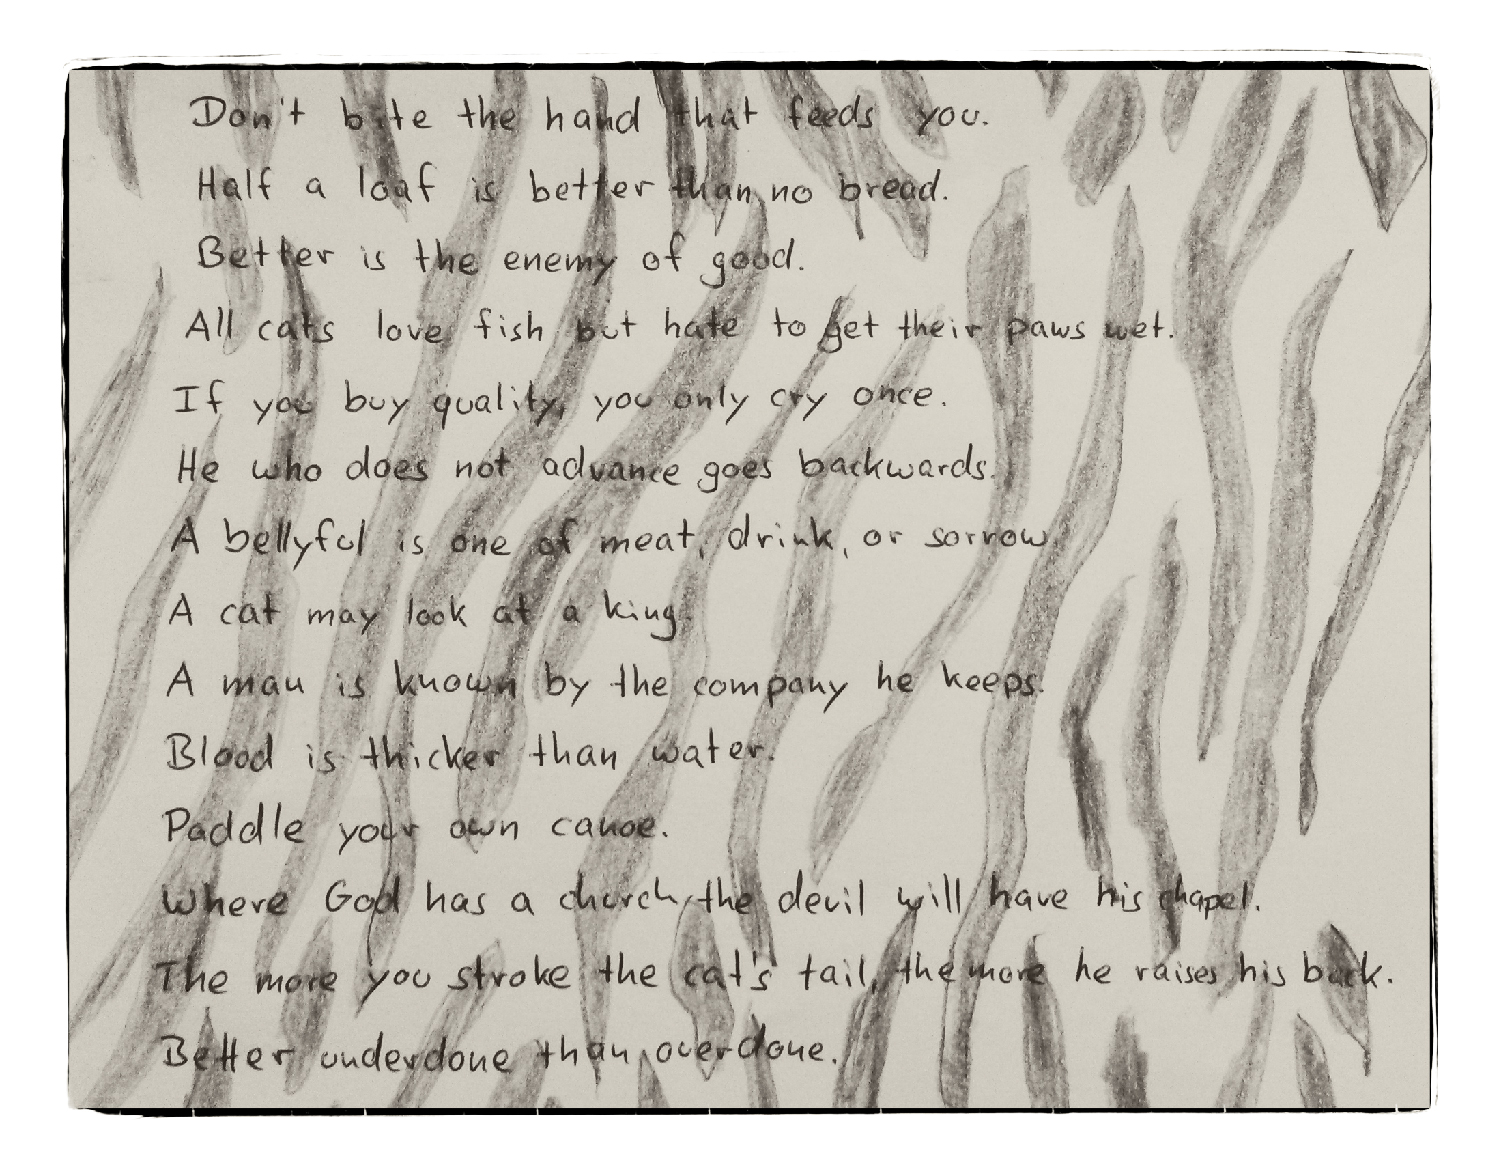 Don't bite the hand that feeds you.
Half a loaf is better than no bread.
Better is the enemy of good.
All cats love fish but hate to get their paws wet.
If you buy quality, you only cry once.
He who does not advance goes backwards.
A bellyful is one of meat, drink, or sorrow.
A cat may look at a king.
A man is known by the company he keeps.
Blood is thicker than water.
Paddle your own canoe.
Where God has a church, the devil will have his chapel.
The more you stroke the cat's tail, the more he raises his back.
Better underdone than overdone.